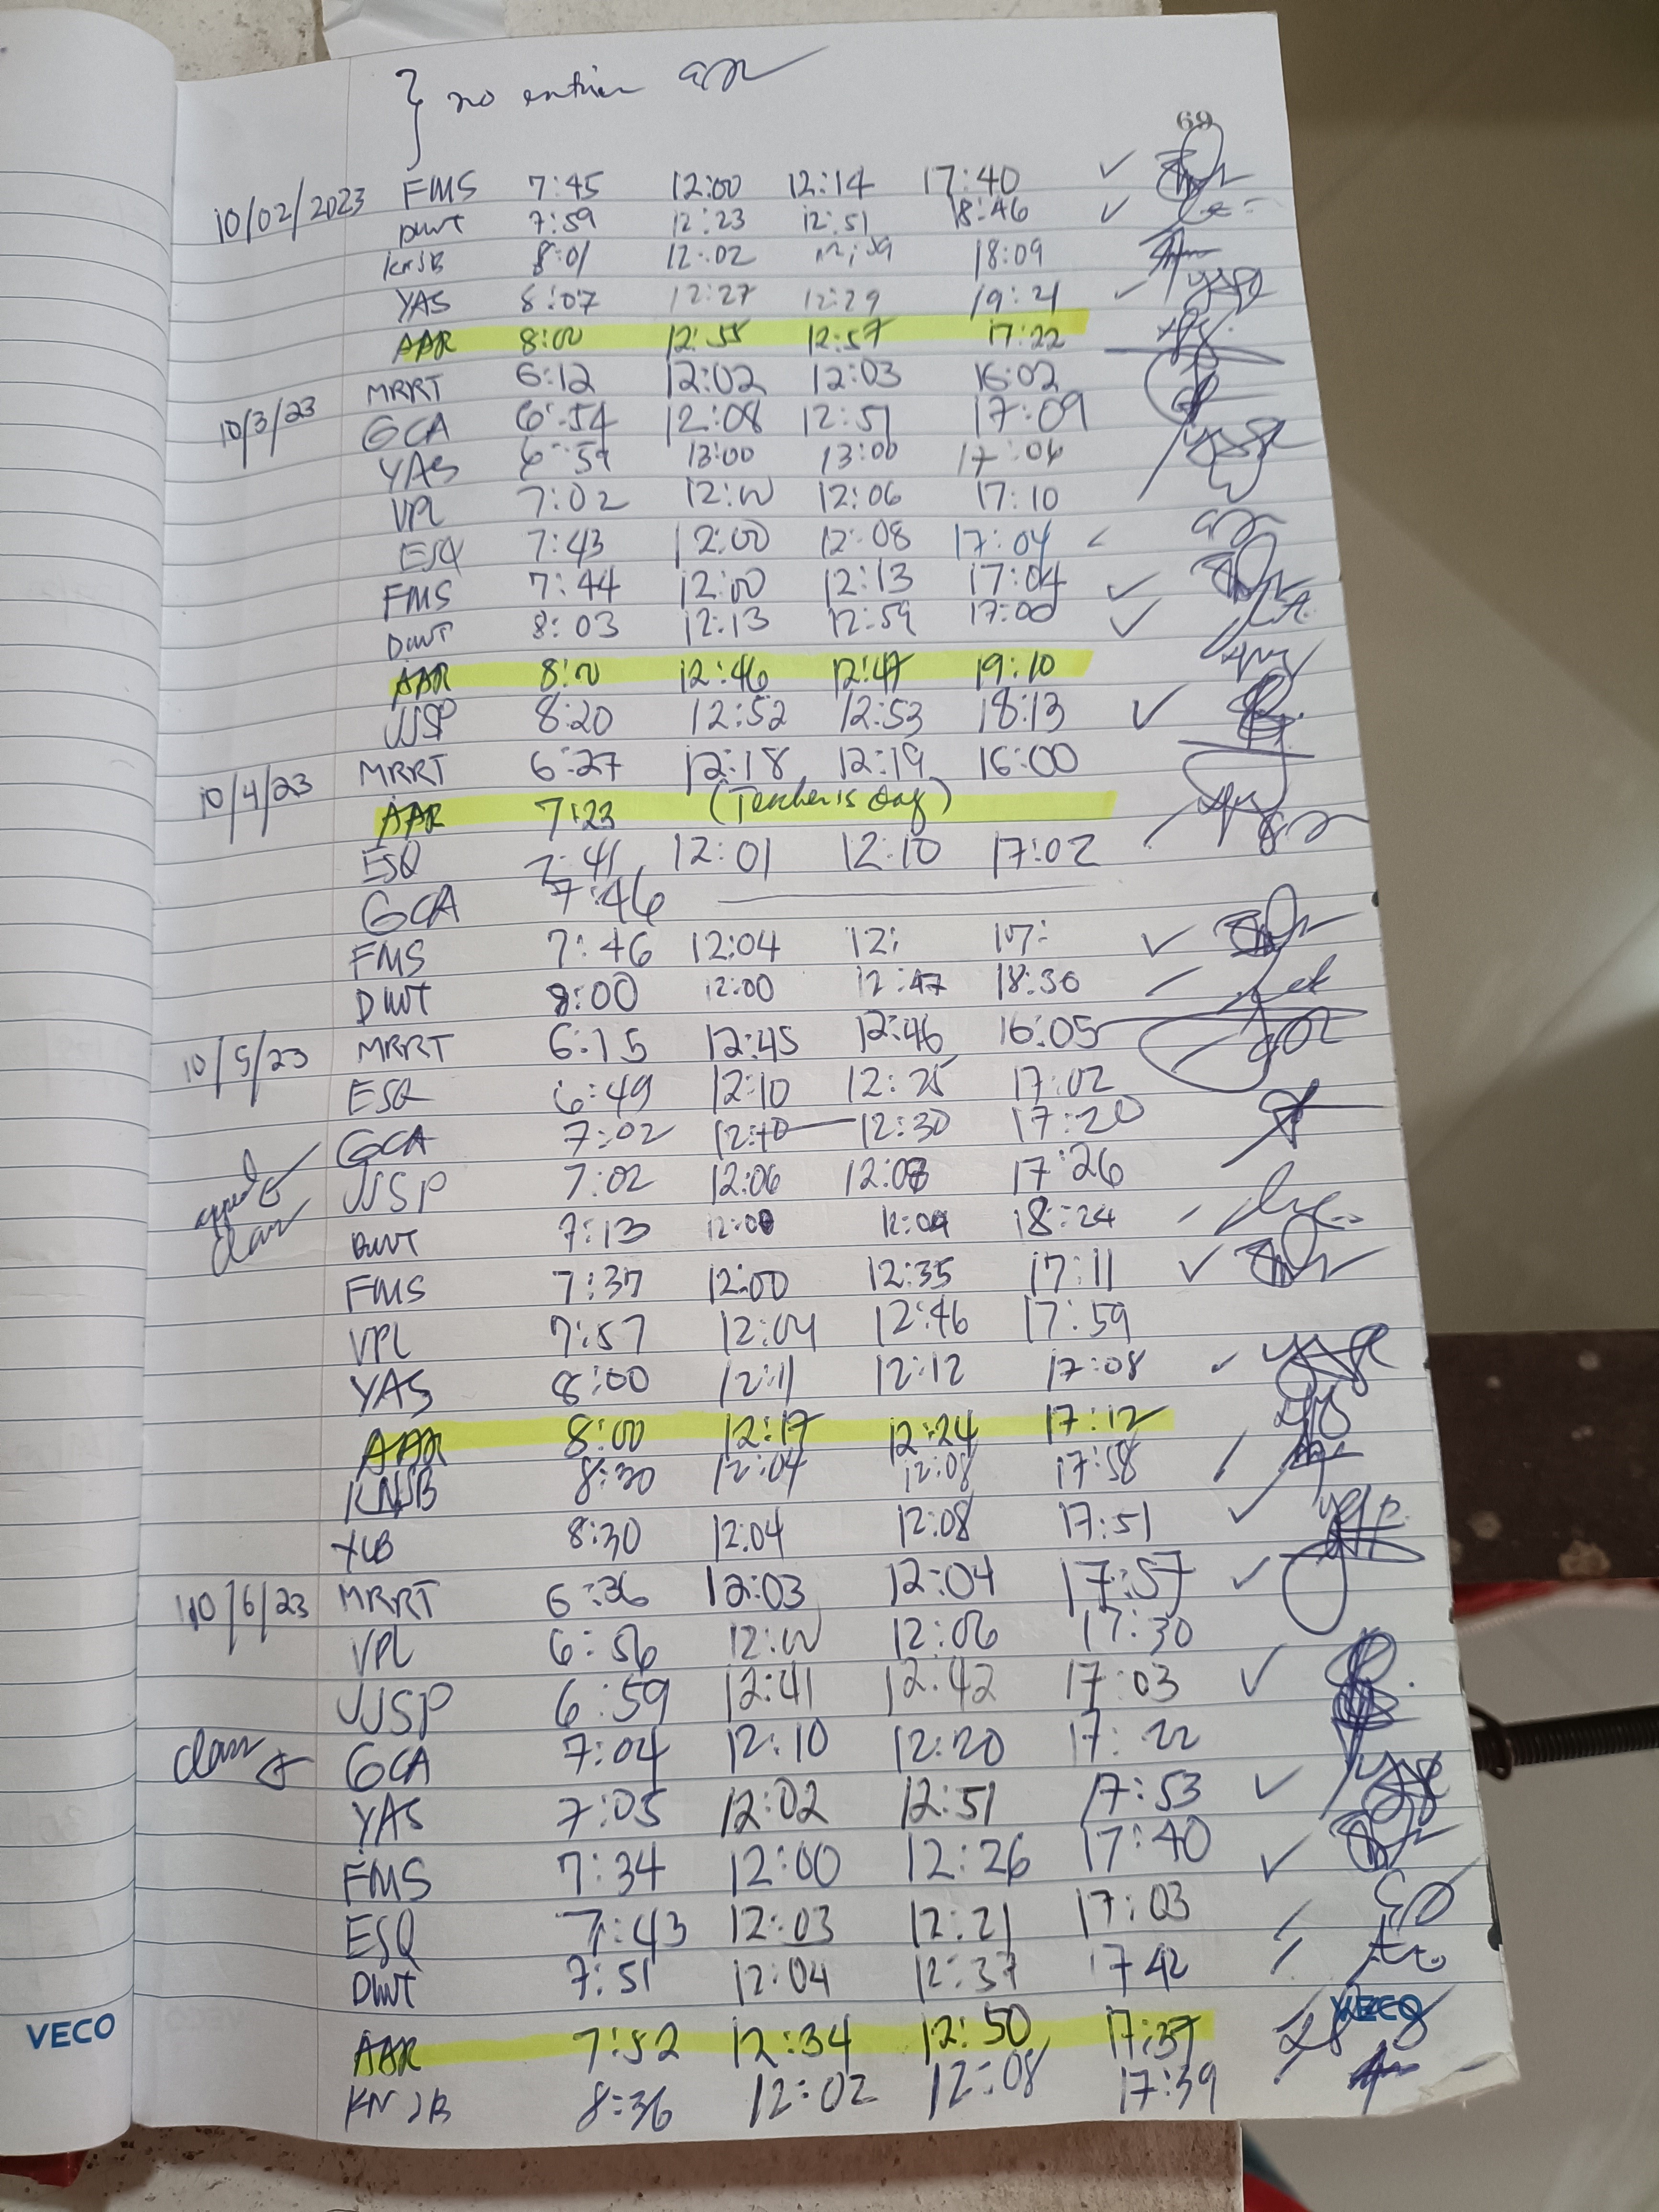 } no entries
69
10/02/2023 FMS 7:45 12:00 12:14 17:40 ✓
DWT 7:59 12:23 12:51 18:46 ✓
KNJB 8:01 12:02 18:09
YAS 8:07 12:27 12:29 19:21 ✓
AAR 8:00 12:55 12:57 17:22
10/3/23 MRRT 6:12 12:02 12:03 16:02
GCA 6:54 12:08 12:51 17:09
YAS 6:59 13:00 13:00 17:06
VPL 7:02 12:00 12:06 17:10
ESQ 7:43 12:00 12:08 17:04 ✓
FMS 7:44 12:00 12:13 17:04 ✓
DWT 8:03 12:13 12:59 17:00 ✓
AAR 8:00 12:46 12:47 19:10
JJSP 8:20 12:52 12:53 18:13 ✓
10/4/23 MRRT 6:27 12:18 12:19 16:00
AAR 7:23 (Teacher's Day)
ESQ 7:41 12:01 12:10 17:02
GCA 7:46
FMS 7:46 12:04 12: 17: ✓
DWT 8:00 12:00 12:47 18:30
10/5/23 MRRT 6:15 12:45 12:46 16:05
ESQ 6:49 12:10 12:25 17:02
GCA 7:02 12:10 12:30 17:20
JJSP 7:02 12:06 12:08 17:26
DWT 7:13 12:00 12:09 18:24
FMS 7:37 12:00 12:35 17:11 ✓
VPL 7:57 12:04 12:46 17:59
YAS 8:00 12:11 12:12 17:08 ✓
AAR 8:00 12:17 12:24 17:12
KNJB 8:30 12:04 12:08 17:58
8:30 12:04 12:08 17:51 ✓
10/6/23 MRRT 6:36 12:03 12:04 17:57 ✓
VPL 6:56 12:00 12:06 17:30
JJSP 6:59 12:41 12:42 17:03 ✓
GCA 7:04 12:10 12:20 17:22
YAS 7:05 12:02 12:51 17:53 ✓
FMS 7:34 12:00 12:26 17:40 ✓
ESQ 7:43 12:03 12:21 17:03
DWT 7:51 12:04 12:37 17 42
AAR 7:52 12:34 12:50 17:37
KNJB 8:36 12:02 12:08 17:39
VECO
VECO